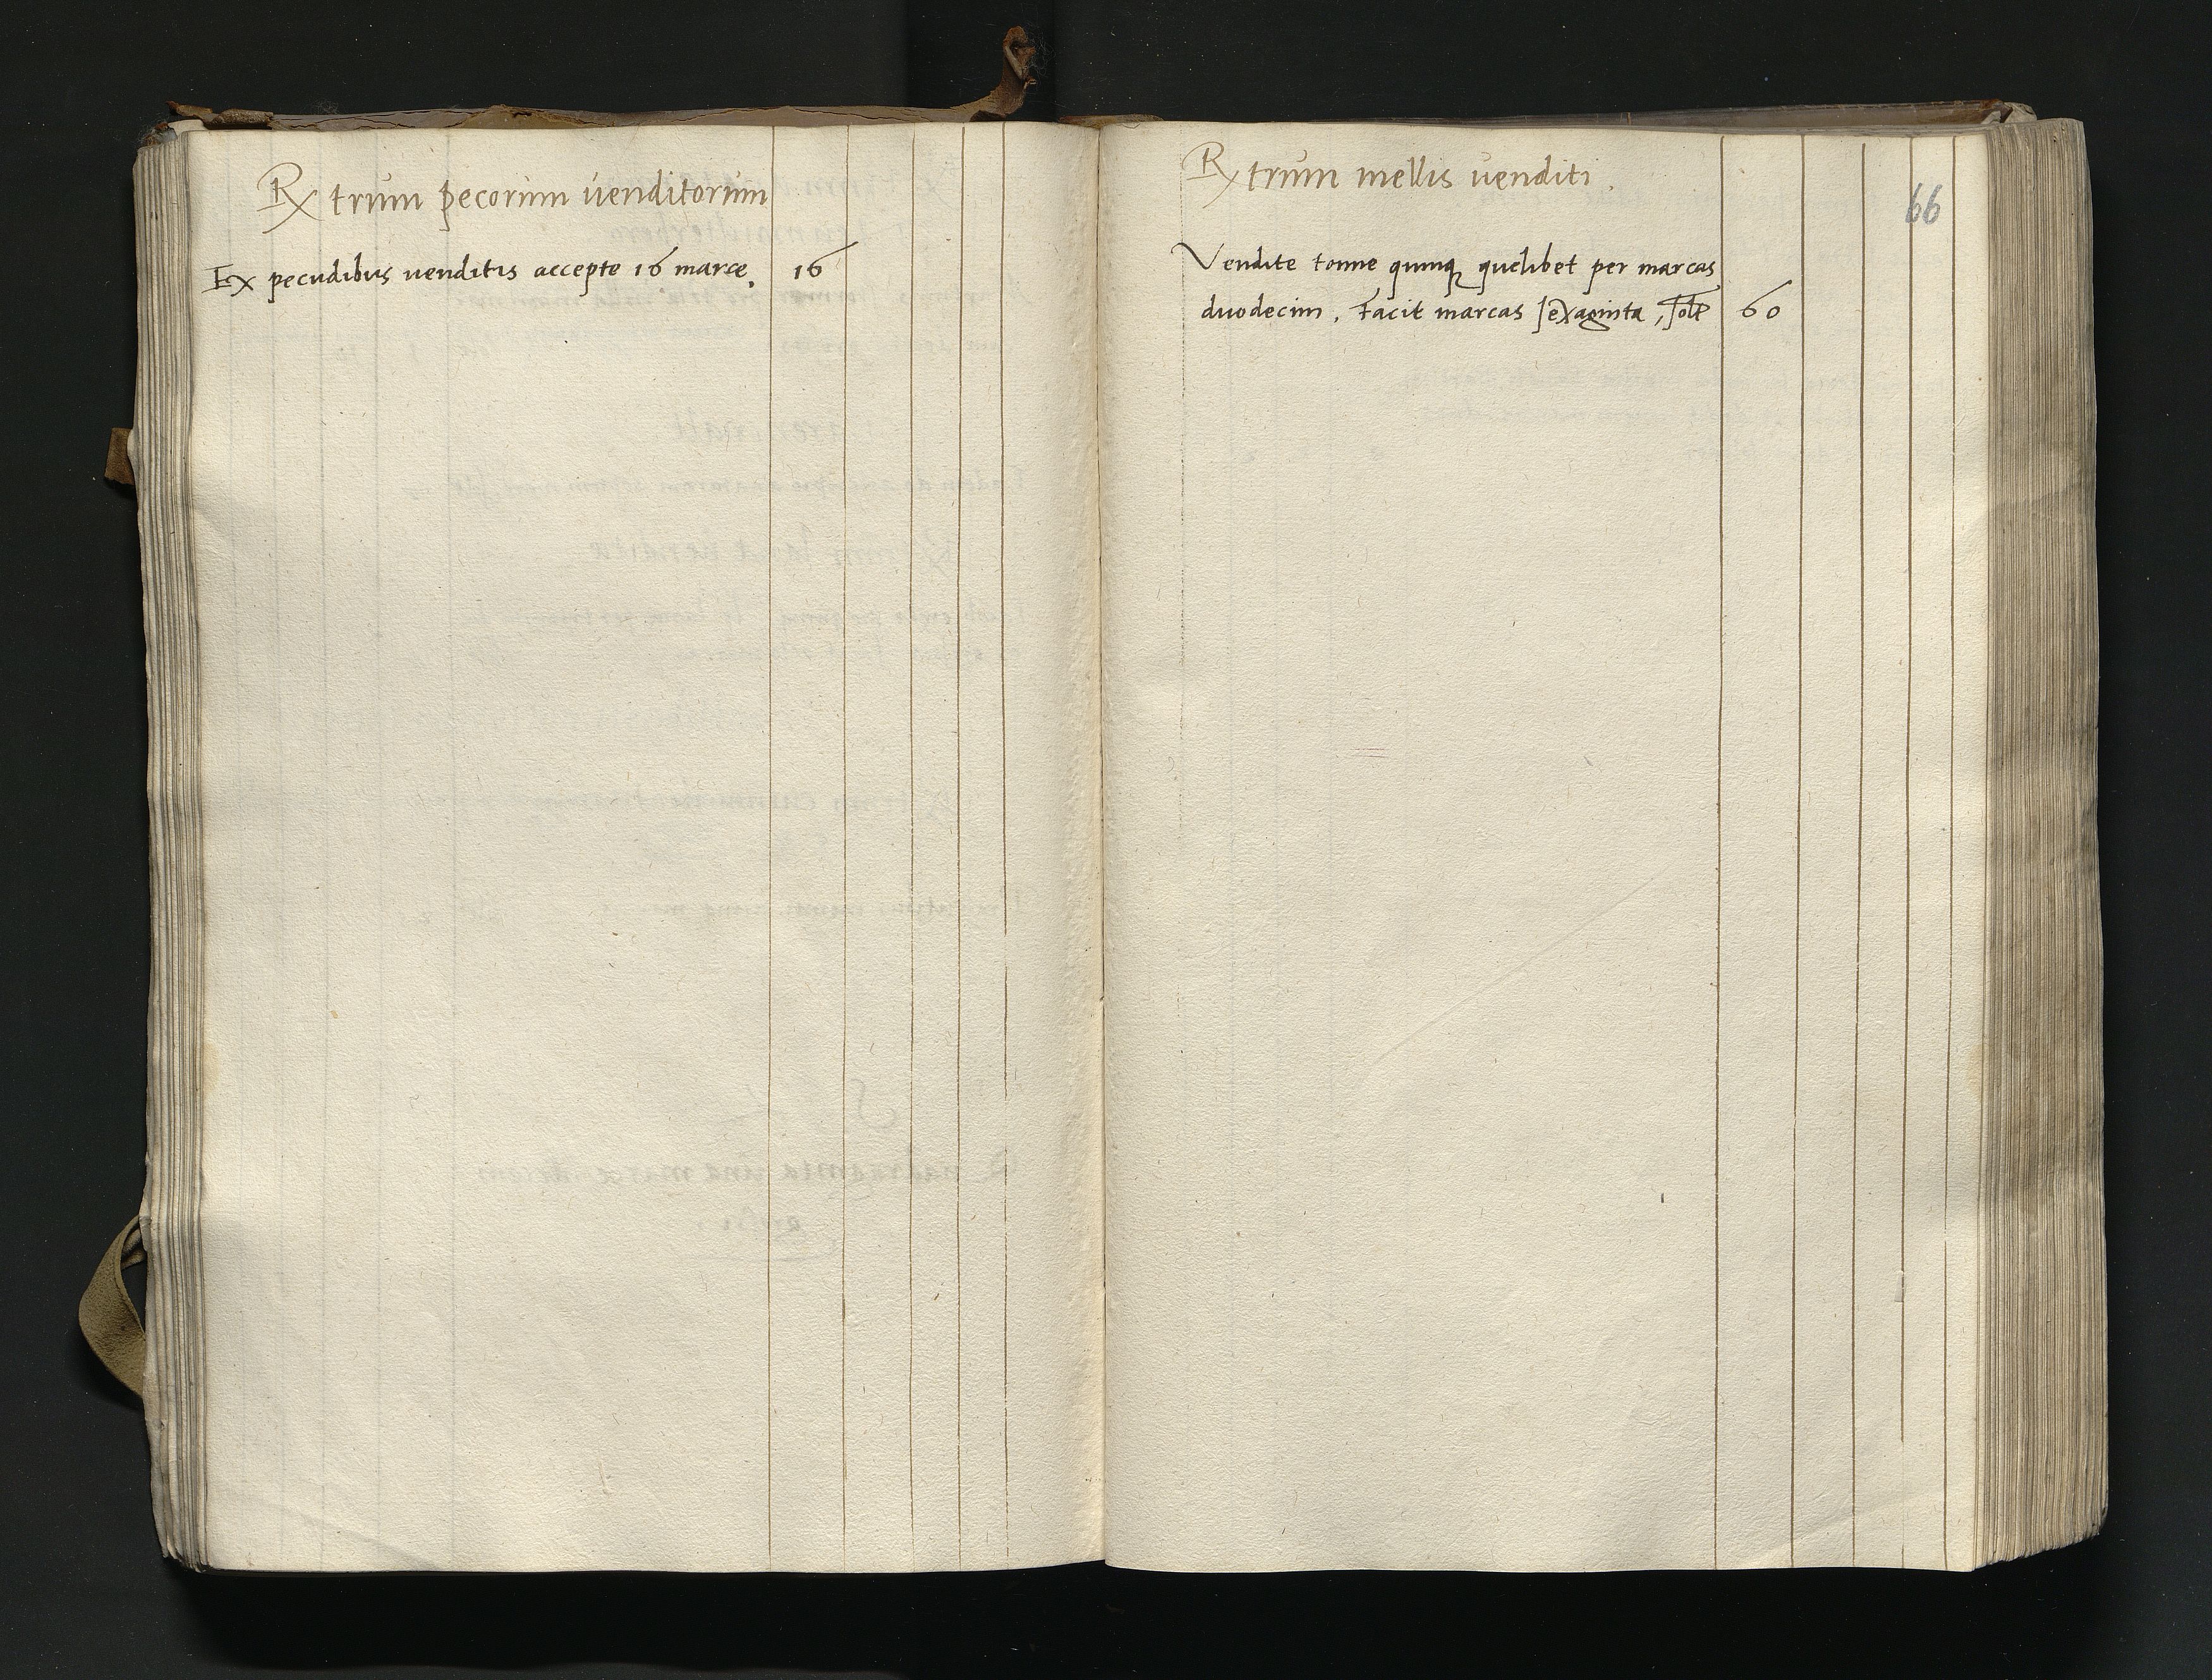 Rx trum pecorum venditorum
Ex pecudibus venditis accepte 16 marce. 16
Rx trum mellis venditi.
66
Vendite tonne quinq quelibet per marcas
duodecim. Facit marcas sexaginta, 60